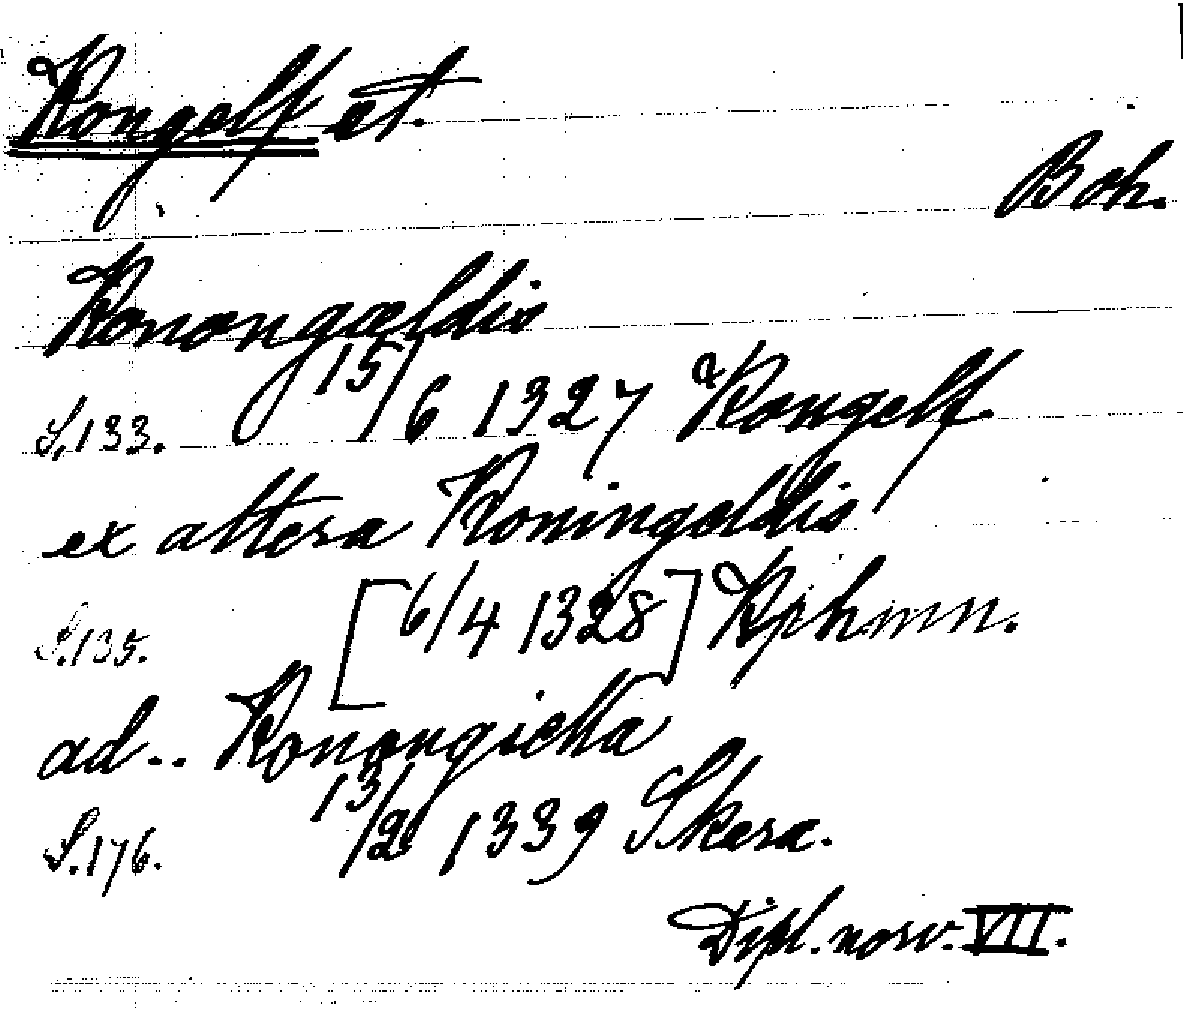 Kongelf et.
Boh.
Konongældis
S.133. 15/6 1327 Kongelf.
ex altera Koningældis
S.135. [6/4 1328] Kphmn.
ad.. Konongiella
S.176. 13/2 1339 Skera.
Dipl. norv. VII.